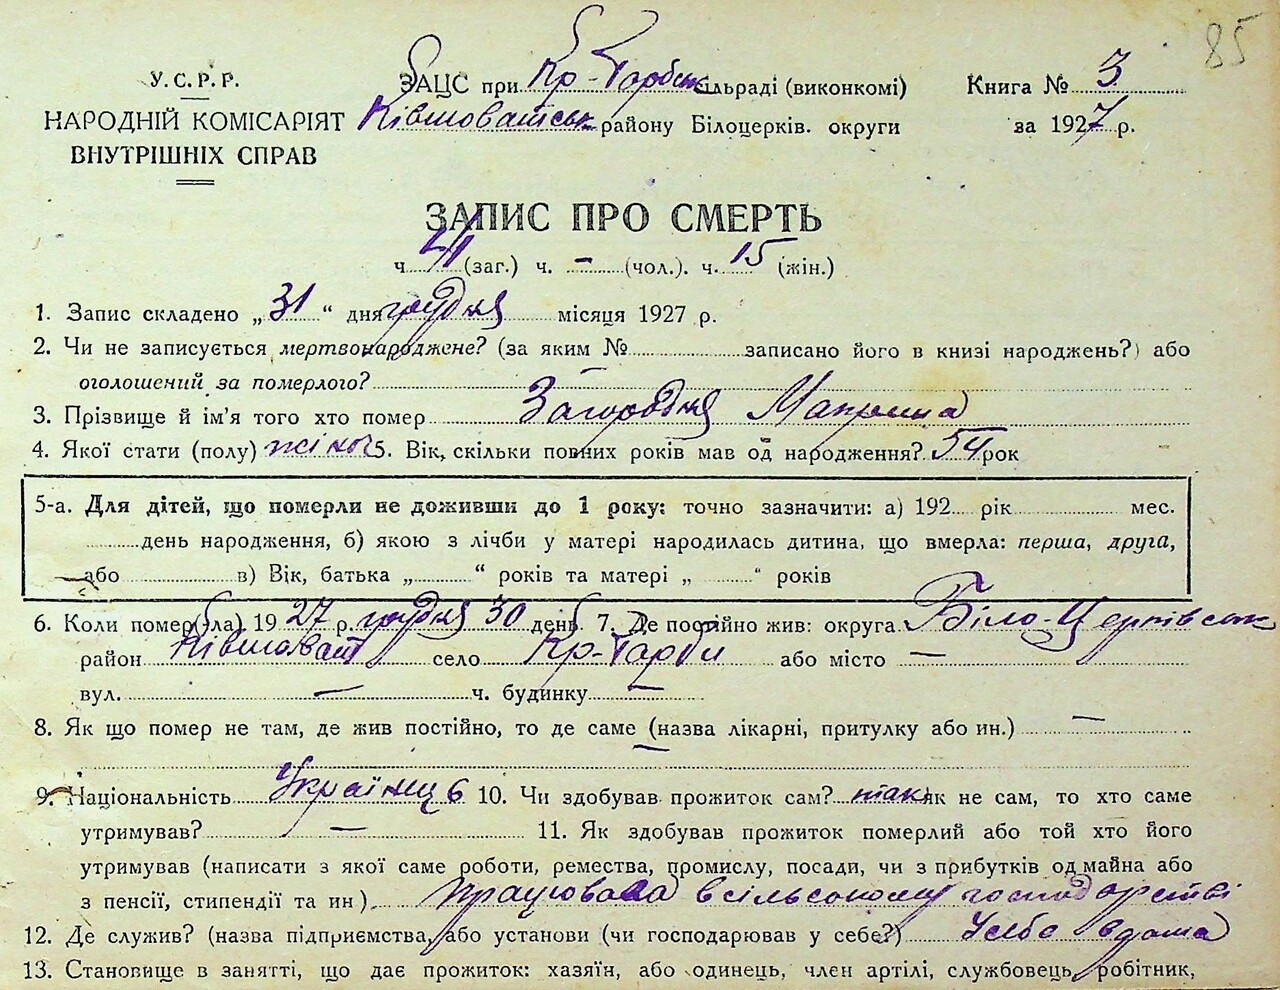 85
У.С.Р.Р.
НАРОДНІЙ КОМІСАРІЯТ
ВНУТРІШНІХ СПРАВ
ЗАЦС при Кр-Тарбськ сільраді (виконкомі)
Ківшоватськ району Білоцерків. округи
Книга № 3
за 1927 р.
ЗАПИС ПРО СМЕРТЬ
ч. 21 (заг.) ч. – (чол.). ч. 15 (жін.)
1. Запис складено „31“ дня грудня місяця 1927 р.
2. Чи не записується мертвонароджене? (за яким № – записано його в книзі народжень?) або
оголошений за померлого? –
3. Прізвище й ім'я того хто помер Загородня Мапрына
4. Якої стати (полу) жіноч 5. Вік, скільки повних років мав од народження? 54 рок
5-а. Для дітей, що померли не доживши до 1 року: точно зазначити: а) 192 рік мес.
день народження, б) якою з лічби у матері народилась дитина, що вмерла: перша, друга,
або в) Вік, батька „ “ років та матері „ “ років
6. Коли помер(бла) 1927 р. грудня 30 день 7. Де постійно жив: округа Біло-Церківськ
район Ківшоват село Кр-Тарби або місто –
вул. – ч. будинку –
8. Як що помер не там, де жив постійно, то де саме (назва лікарні, притулку або ин.) –
–
9. Національність Українць 10. Чи здобував прожиток сам? так як не сам, то хто саме
утримував? – 11. Як здобував прожиток померлий або той хто його
утримував (написати з якої саме роботи, ремества, промислу, посади, чи з прибутків од майна або
з пенсії, стипендії та ин.) працювала в сільському господарстві
12. Де служив? (назва підприємства, або установи (чи господарював у себе?) Усебе вдома
13. Становище в занятті, що дає прожиток: хазяїн, або одинець, член артілі, службовець, робітник,